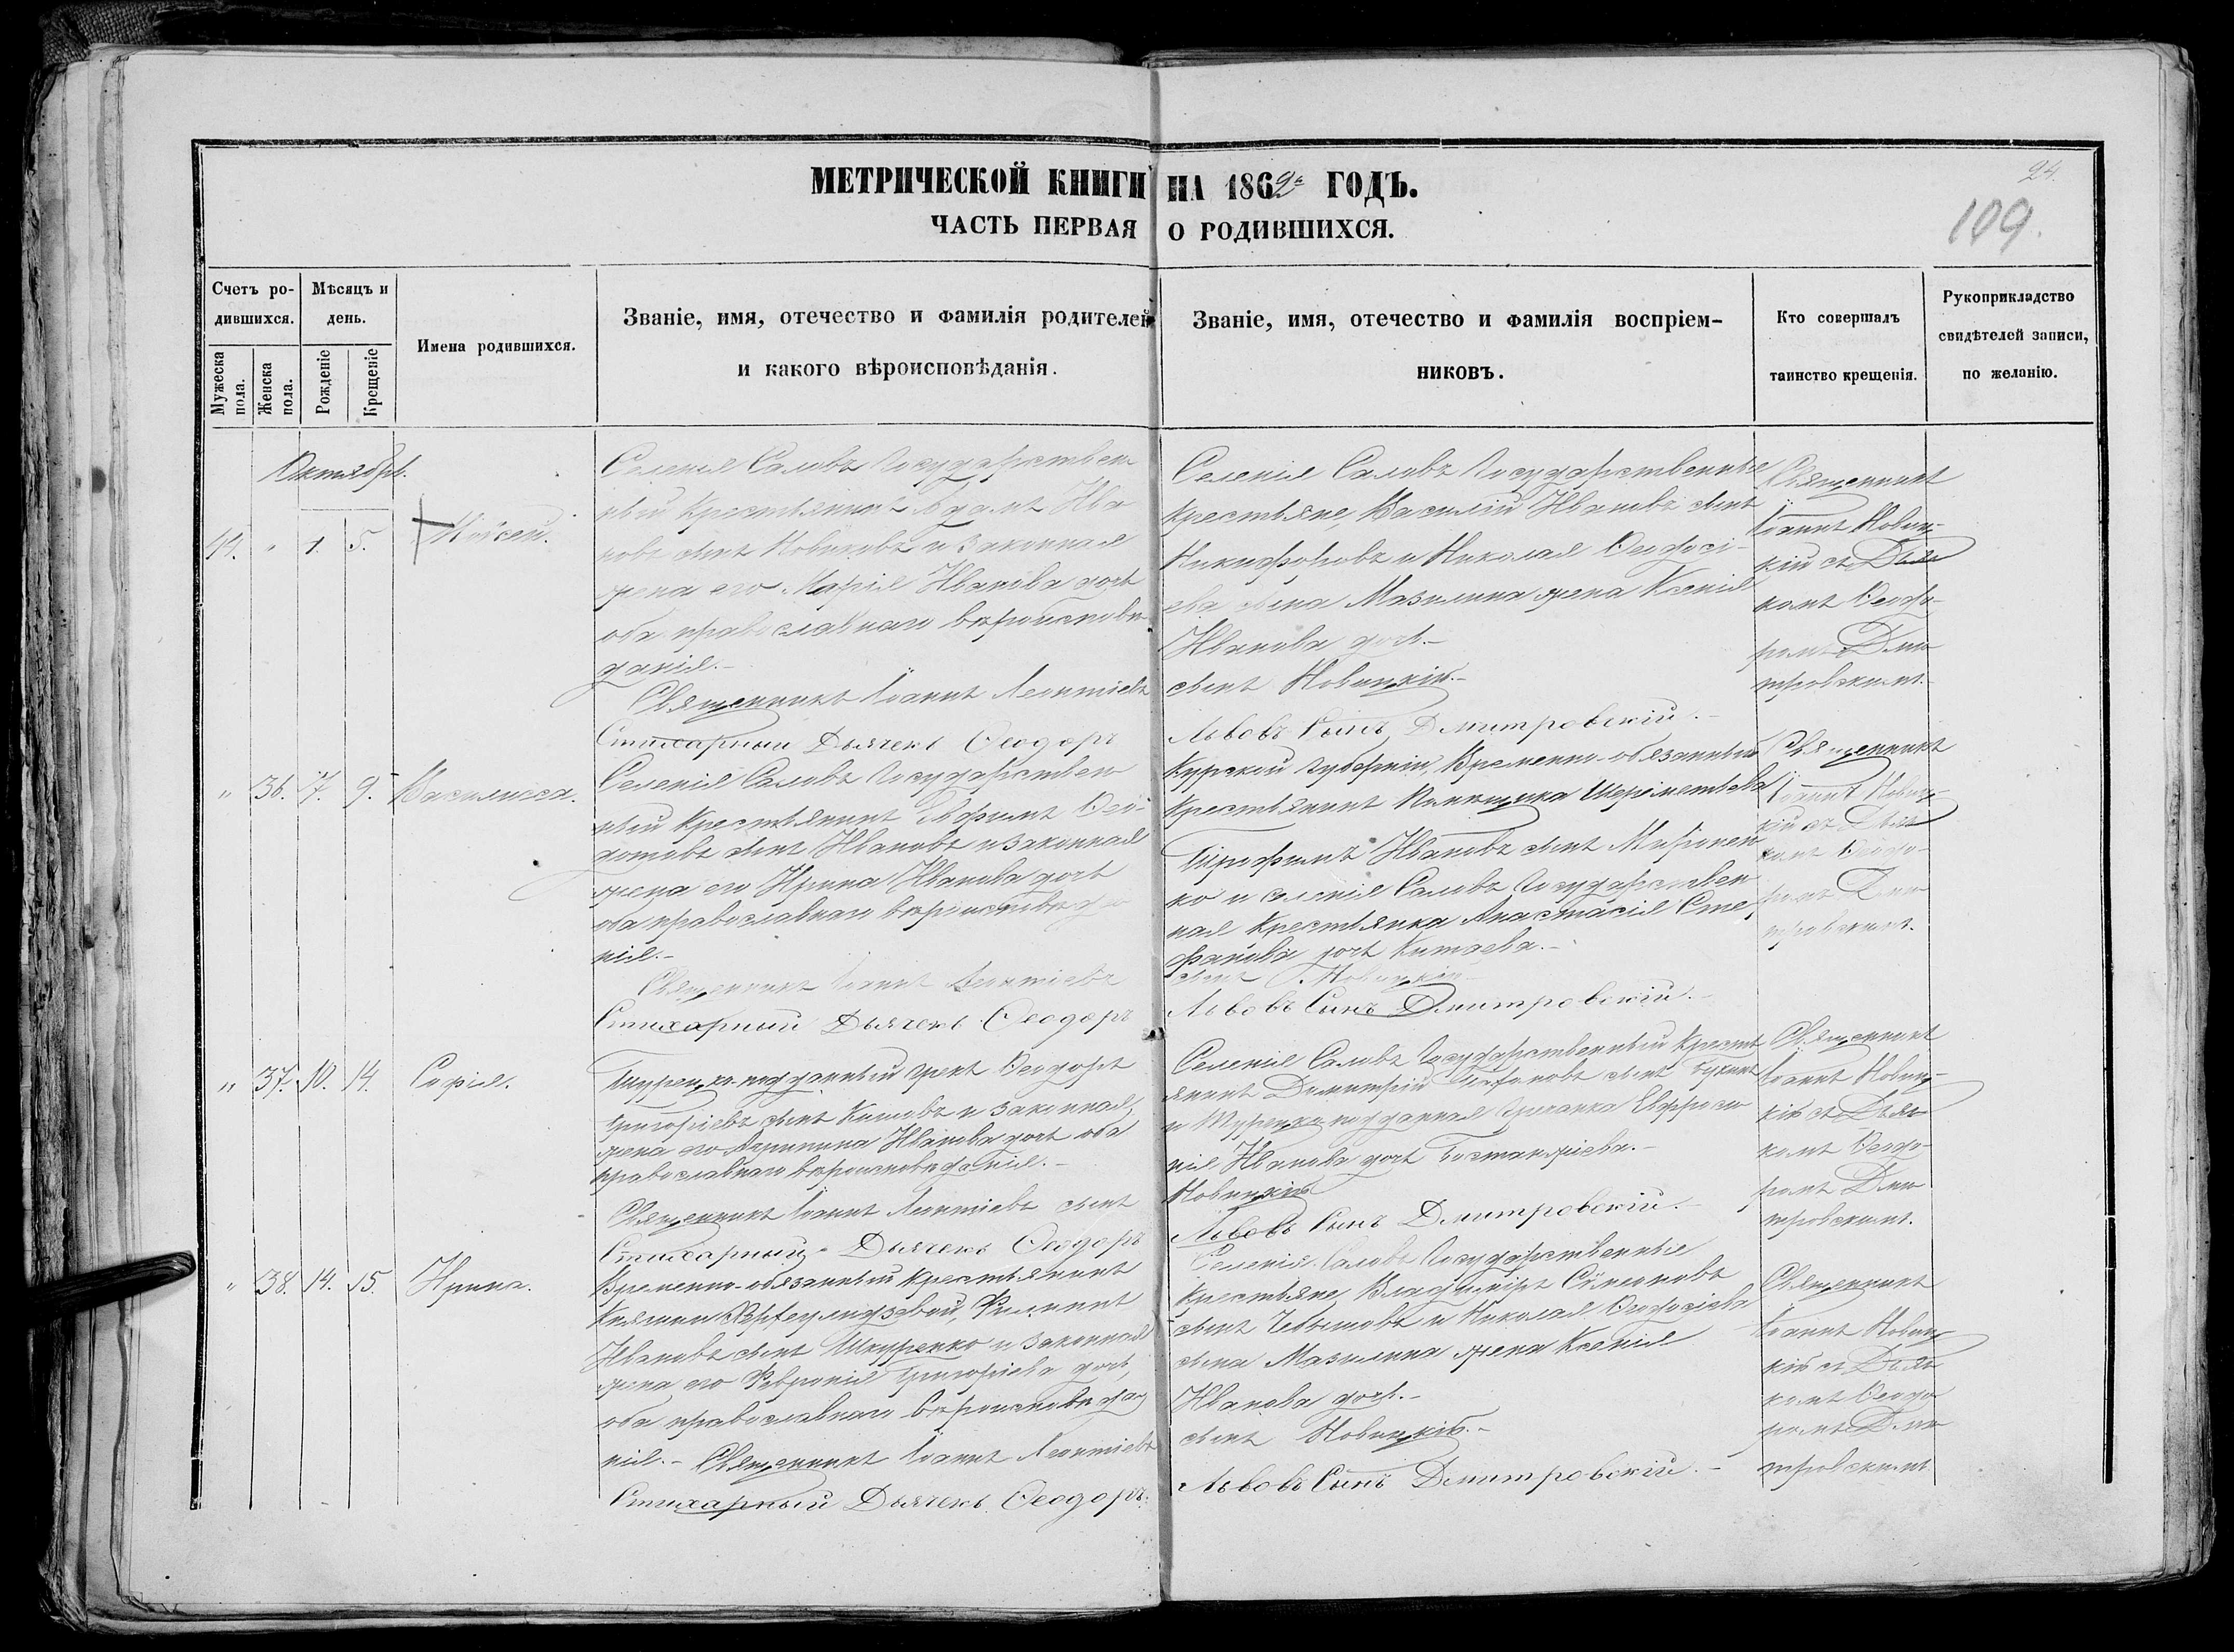 МЕТРИЧЕСКОЙ КНИГИ НА 1862й ГОДЪ.
24.
109.
ЧАСТЬ ПЕРВАЯ О РОДИВШИХСЯ.
Счетъ ро-
дившихся.
Мужеска
пола.
Женска
пола.
Мѣсяцъ и
день.
Рожденіе
Крещеніе
Имена родившихся.
Званіе, имя, отечество и фамилія родителей
и какого вѣроисповѣданія.
Званіе, имя, отечество и фамилія воспріем-
никовъ.
Кто совершалъ
таинство крещенія.
Рукоприкладство
свидѣтелей записи,
по желанію.
Октябрь.
" 1. 5. Моисей.
Селенія Саловъ Государствен
ный Крестьянинъ Адамъ Ива
новъ сынъ Новиковъ и законная
жена его Марія Иванова дочь
оба православнаго вѣроисповѣ-
данія.-
Священникъ Іоаннъ Леонтіевъ
Стихарный Дьячекъ Ѳеодоръ
Селенія Саловъ Государственные
Крестьяне, Василій Ивановъ сынъ
Никифоровъ и Николая Ѳеодосі-
ева сына Мазилина жена Ксенія
Иванова дочь.-
сынъ Новицкій.-
Львовъ Сынъ Дмитровскій.-
Священникъ
Іоаннъ Новиц-
кій съ Дьяч
комъ Ѳеодо-
ромъ Дми
тровскимъ.
" 36. 7. 9. Василисса.
Селенія Саловъ Государствен
ный Крестьянинъ Евфимъ Ѳео-
дотовъ сынъ Ивановъ и законная
жена его Ирина Иванова дочь
оба православнаго вѣроисповѣда
нія.-
Священникъ Іоаннъ Леонтіевъ
Стихарный Дьячекъ Ѳеодоръ
Курской губерніи, Временно-обязанный
Крестьянинъ Помѣщика Шереметьева
Трофимъ Ивановъ сынъ Миронен
ко и селенія Саловъ Государствен
ная Крестьянка Анастасія Сте
фанова дочь Китаева.-
сынъ Новицкій
Львовъ Сынъ Дмитровскій.
Священникъ
Іоаннъ Новиц-
кій съ Дьяч
комъ Ѳеодо-
ромъ Дми
тровскимъ.
" 37. 10. 14. Софія.
Турецко-подданный грекъ Ѳеодоръ
Григоріевъ сынъ и законная
жена его Иванова дочь оба
православнаго вѣроисповѣданія.-
Священникъ Іоаннъ Леонтіевъ сынъ
Стихарный Дьячекъ Ѳеодоръ
Селенія Саловъ Государственный Кресть
янинъ Димитрій сынъ
и Турецко-подданная Гречанка Евфроси
нія Иванова дочь Бостанжіева.-
Новицкій
Львовъ Сынъ Дмитровскій.-
Священникъ
Іоаннъ Новиц-
кій съ Дьяч
комъ Ѳеодо-
ромъ Дми
тровскимъ.
" 38. 14. 15. Ирина.
Временно-обязанный Крестьянинъ
Княгини Филиппъ
Ивановъ сынъ Шкуренко и законная
жена его Февронія Григоріева дочь,
оба православнаго вѣроисповѣда
нія.- Священникъ Іоаннъ Леонтіевъ
Стихарный Дьячекъ Ѳеодоръ.
Селенія Саловъ Государственные
Крестьяне Владиміръ Сѵмеоновъ
сынъ и Николая Ѳеодосіева
сына Мазилина жена Ксенія
Иванова дочь.-
сынъ Новицкій.-
Львовъ Сынъ Дмитровскій.-
Священникъ
Іоаннъ Новиц
кій съ Дьяч
комъ Ѳеодо
ромъ Дми
тровскимъ